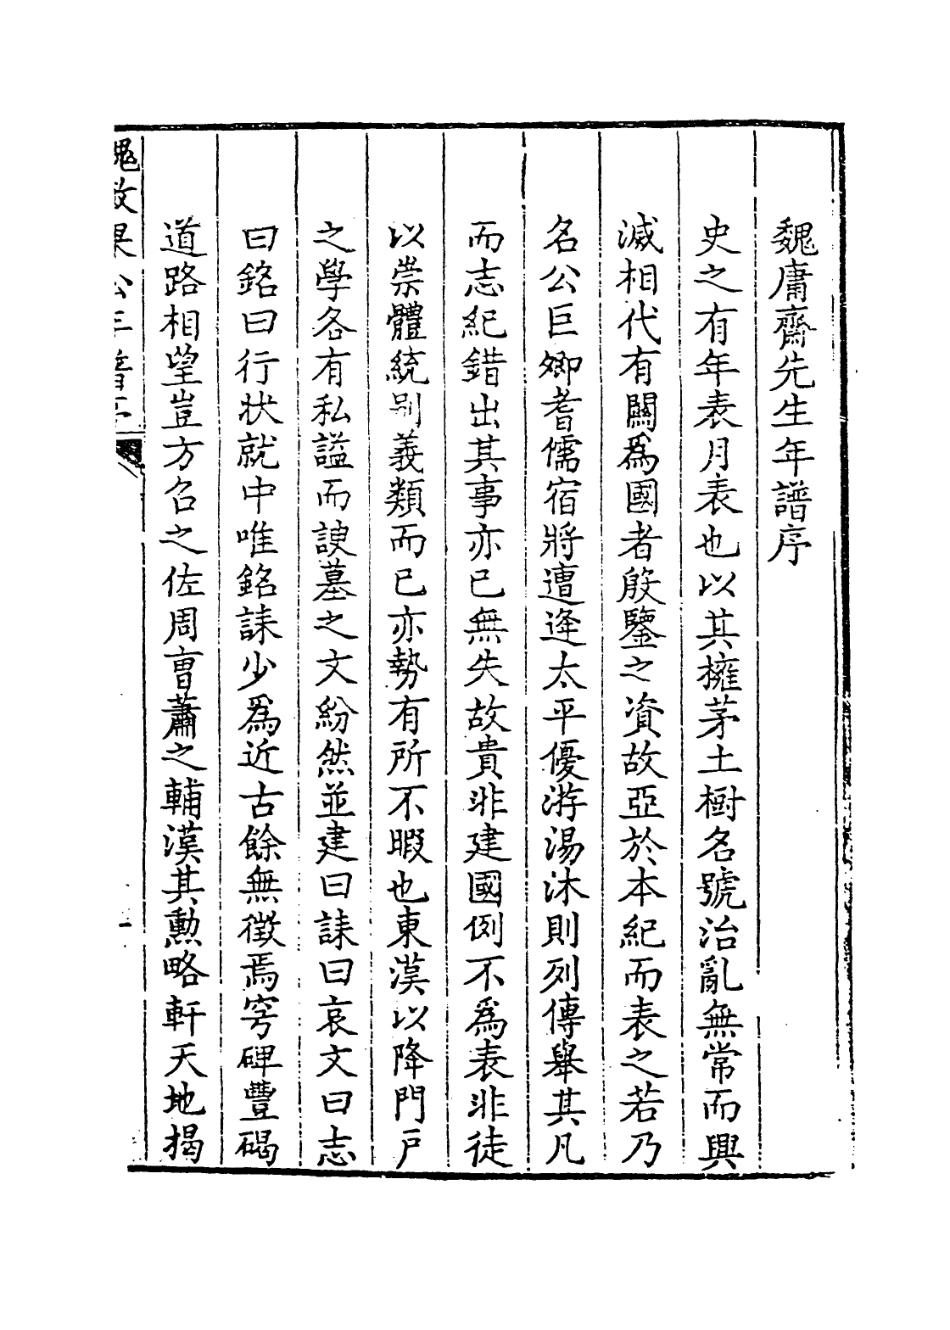 魏庸齋先生年譜序
史之有年表月表也以其擁茅土樹名號治亂無常而興
滅相代有闗為國者殷鑒之資故亞於本紀而表之若乃
名公巨卿耆儒宿將遭逢太平優游湯沐則列傳舉其凡
而志紀錯出其事亦已無失故貴非建國例不為表非徒
以崇體統别義類而已亦勢有所不暇也東漢以降門戸
之學各有私謚而諛墓之文紛然並建曰誄曰哀文曰志
曰銘曰行狀就中唯銘誄少為近古餘無徵焉穹碑豐碣
道路相望豈方召之佐周曺蕭之輔漢其勲略軒天地揭
魏敏果公年譜序
一